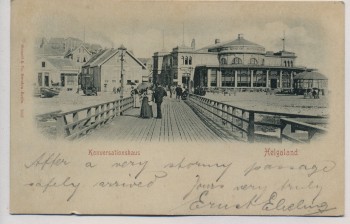 Konversationshaus
Helgoland
After a very stormy passage
safely arrived
Yours very truly
Ernst Ebeling